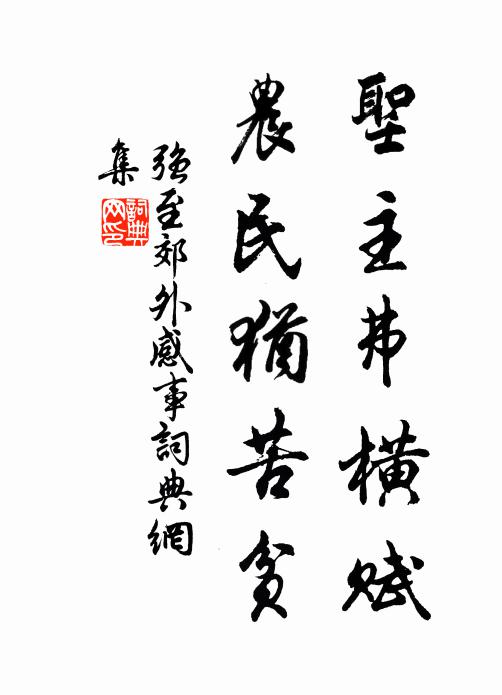 聖主弗橫賦
農民猶苦貧
強至郊外感事詞典網
集
詞典
网印